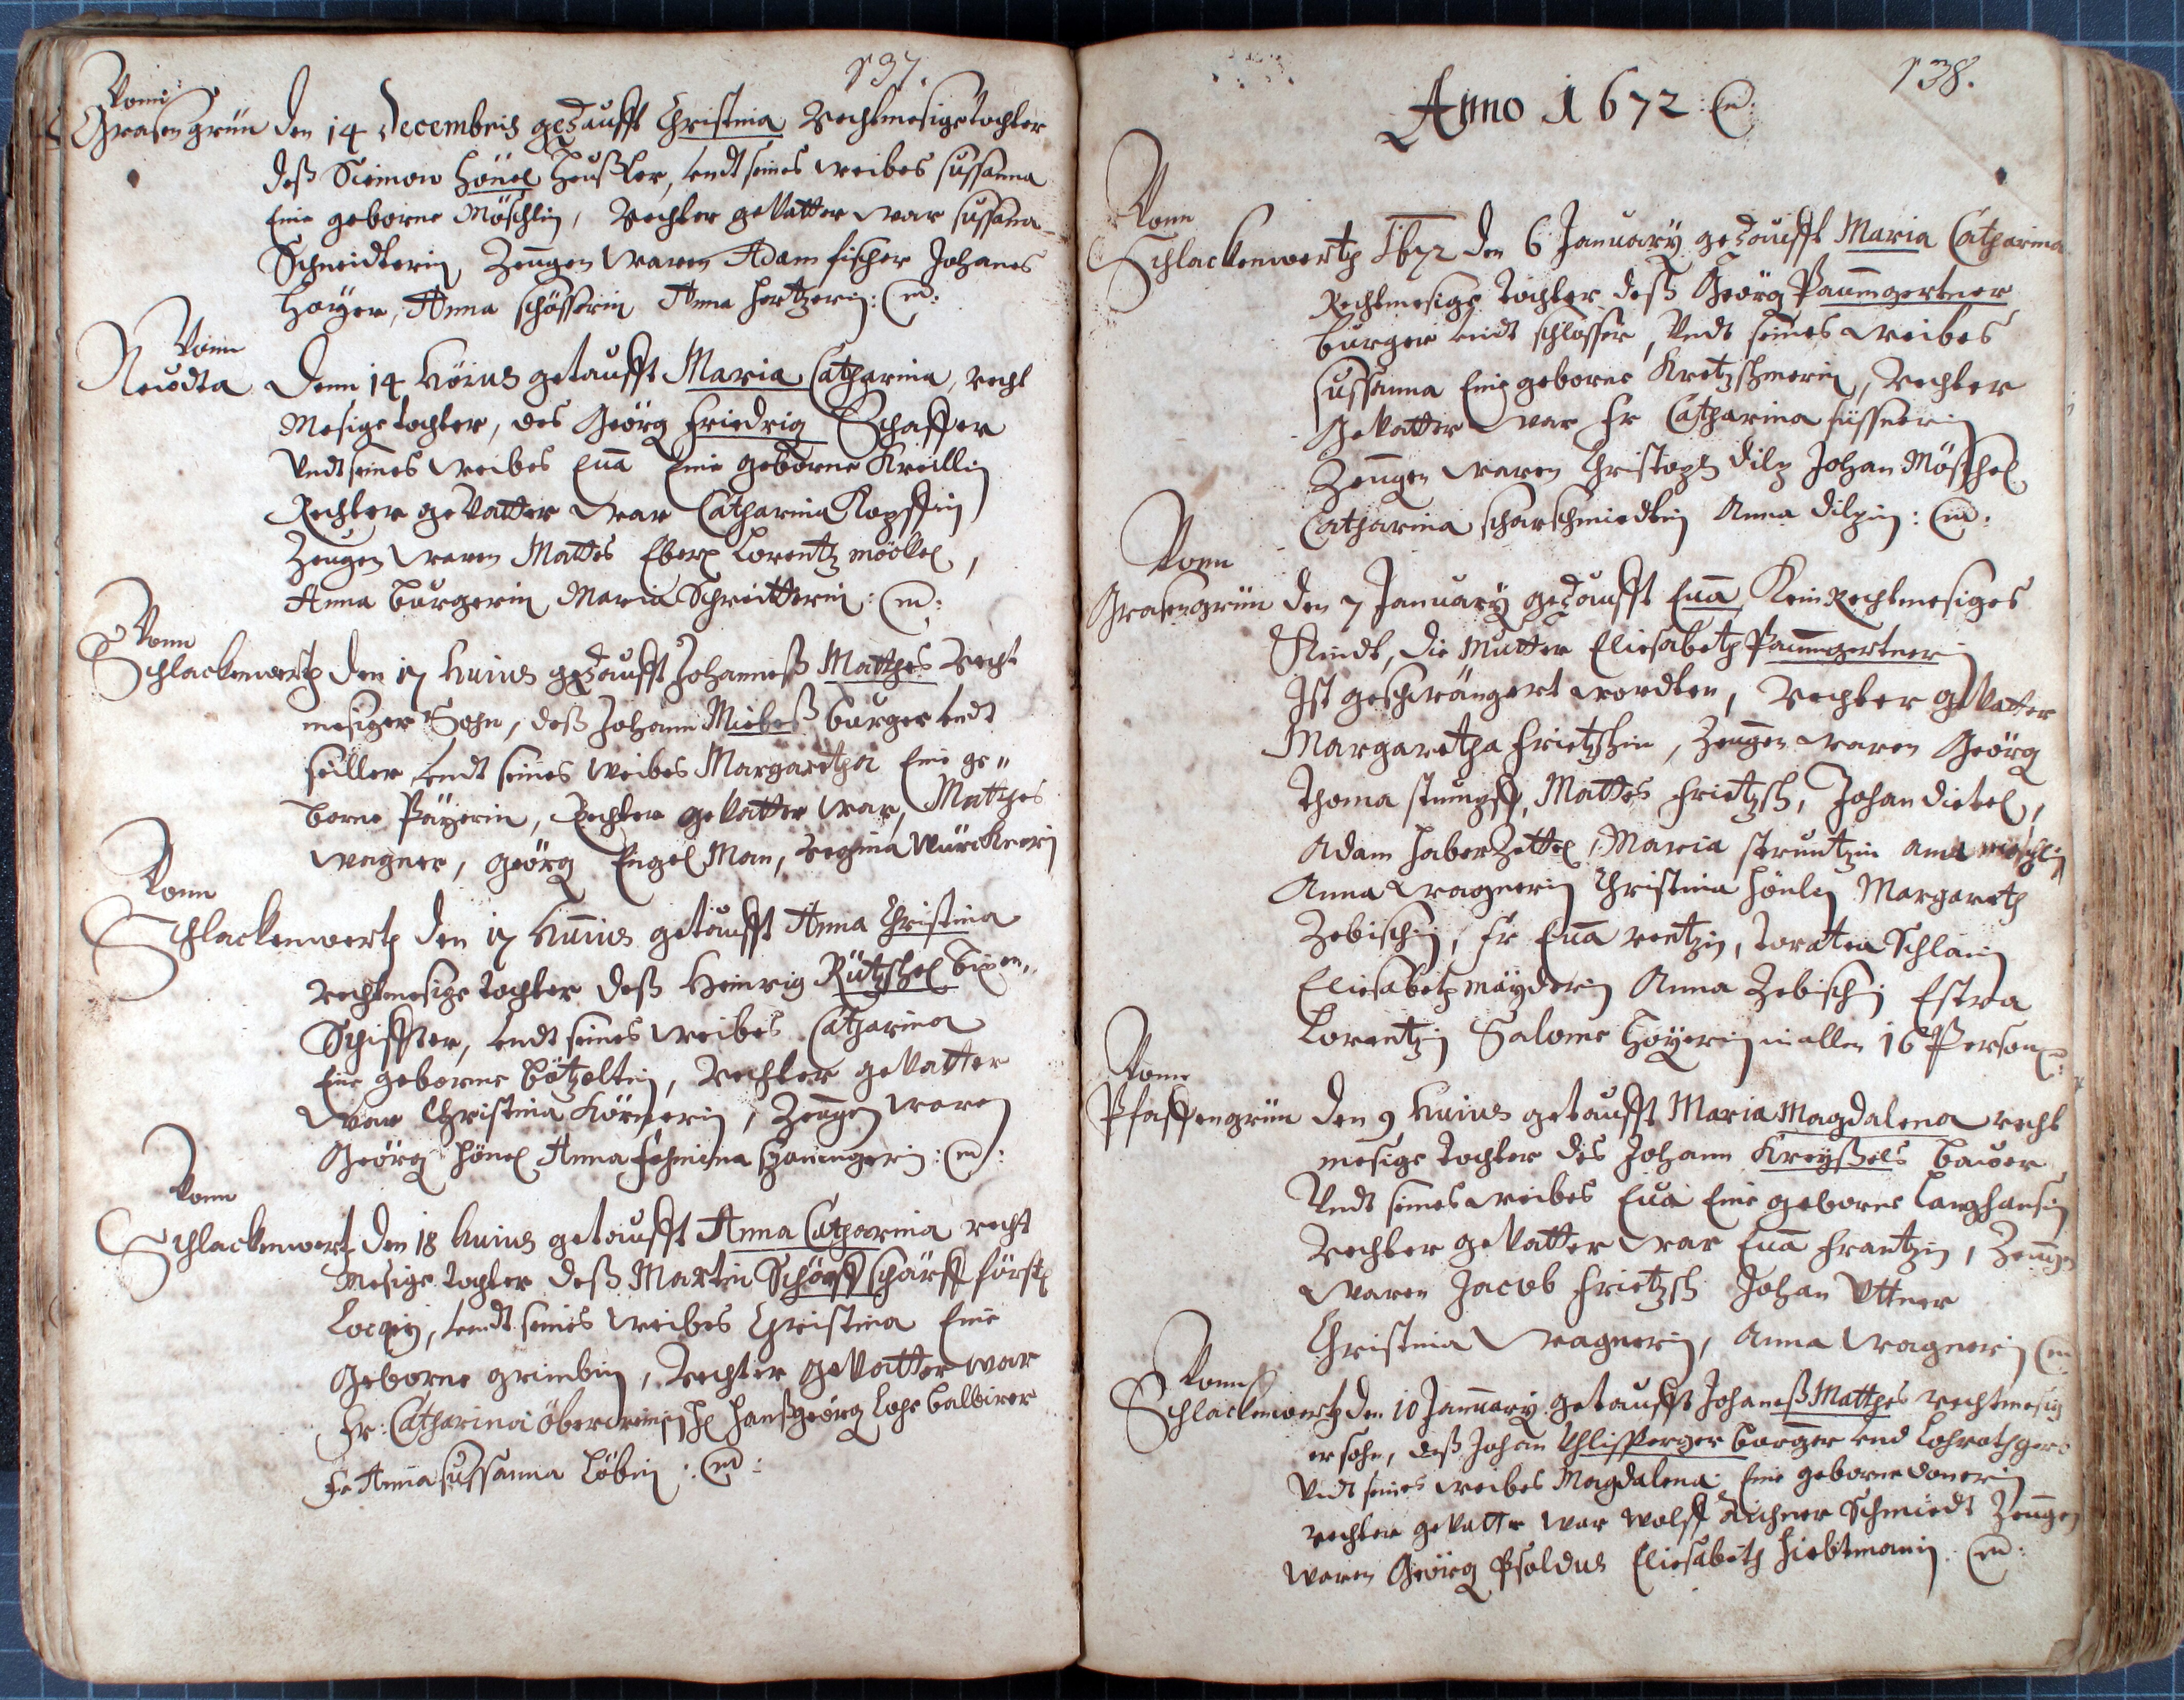 137.
Vomn
Grasengrün den 14 Decembris getaufft Christina Rechtmesige tochter
deß Siemon Hönel Heußler, undt seines weibes sussanna
Eine geborne Möschlin, Rechter gevatter war sussana
Schneidterin Zeugen waren Adam fischer Johanes
Hoyer, Anna schösserin Anna Hertzerin: (m):
Vonn
Neudta Denn 14 Huius getaufft Maria Catharina, recht
Mesige tochter, des Geörg Friedrig Schaffer
Undt seines weibes Eua Eine geborne Kreillin
Rechter gevatter war Catharina Kopffin
Zeugen waren Mattes Eberh Lorentz möckel,
Anna burgerin Maria Schreitterin: (m):
Vonn
Schlackenwerth den 17 Huius getaufft Johanneß Matthes Recht
mesiger Sohn, deß Johann Miebeß burger undt
seiller undt seines Weibes Margaretha Eine ge"
borne Päyerin, Rechter gevatter war, Matthes
wagner, Geörg Engel Man, Regina Würcknerin
Vonn
Schlackenwerth den 17 Huius getaufft Anna Christina
rechtmesige tochter deß Heinrig Rützschel bixen"
Schiffter, undt seines weibes Catharina
Eine geborne bötzoltin, Rechter gevatter
war Christina Körnerin, Zeugen waren
Geörg Hönel Anna Fehmina : (m):
Vonn
Schlackenwert den 18 huius getaufft Anna Catharina recht
Mesige tochter deß Martin Schörff schärff fürstl
undt seines weibes Christina Eine
Geborne, Rechter gevatter war
Fr: Catharina Hanßgeörg balbirer
Fr Anna sussanna Löbin : (m):
138.
Anno 1672 (m:
Vonn
Schlackenwerth 1672 den 6 January getaufft Maria Catharina
Rechtmesige tochter deß Geörg Paumgertner
burger undt schlosser, Undt seines weibes
sussanna Eine geborne Kretzschmerin, Rechter
Gevatter war Fr Catharina süssnerin
Zeugen waren Christoph dilp Johan Möschel
Catharina scharschmiedtin Anna dilpin : (m):
Vonn
Grasengrün den 7 January getaufft Eua Kein Rechtmesiges
Kindt, die Mutter Eliesabeth Paumgertnerin
Ist geschwängert wordten, Rechter gevatter
Margaretha Frietzschin, Zeugen waren Geörg
Thoma stumpff, Mattes Frietzsch, Johan dietel,
Adam HaberZettel, Maria struntzin ana möschlin
Anna Wagnerin Christina Hönlin Margareth
Zebischin, Fr Eua rentzin, toratea Schlain
Eliesabeth mäyderin Anna Zebischin Estra
Lorentzin Salome Hoyerin in allen 16 Person:
Vonn
Pfaffengrün den 9 Huius getaufft Maria Magdalena recht
mesige tochter des Johann Kreyßels bauer
Undt seines weibes Eua Eine geborne Langhansin
Rechter gevatter war Eua Frantzin, Zeugen
waren Jacob Frietzsch Johan Uttner
Christina Wagnerin, Anna Wagnerin (m
Vonn
Schlackenwerth den 10 January getaufft Johaneß Matthes rechtmesig
er sohn, deß Johan Uhlissperger burger und Lohrothger
Undt seines weibes Magdalena Eine geborne donerin
rechter gevatter war Wolff Aichner Schmiedt Zeugen
waren Geörg Psoldus Eliesabeth Hiebtmanin. (m):